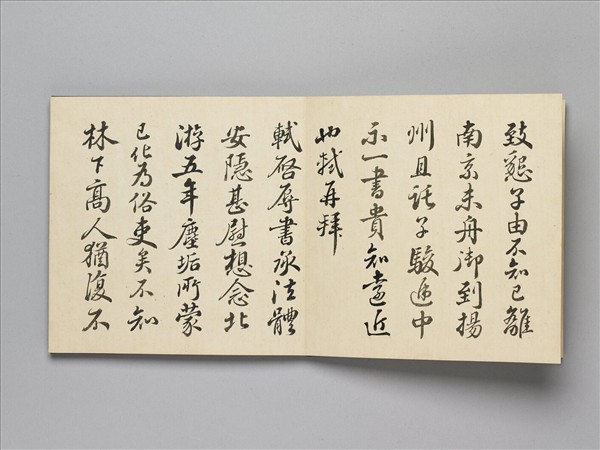 致懇子由不知已離
南京未舟御到揚
州且託子駿遞中
示一書貴知遠近
也軾再拜
軾啓辱書承法體
安隱甚慰想念北
游五年塵垢所蒙
已化為俗吏矣不知
林下高人猶復不